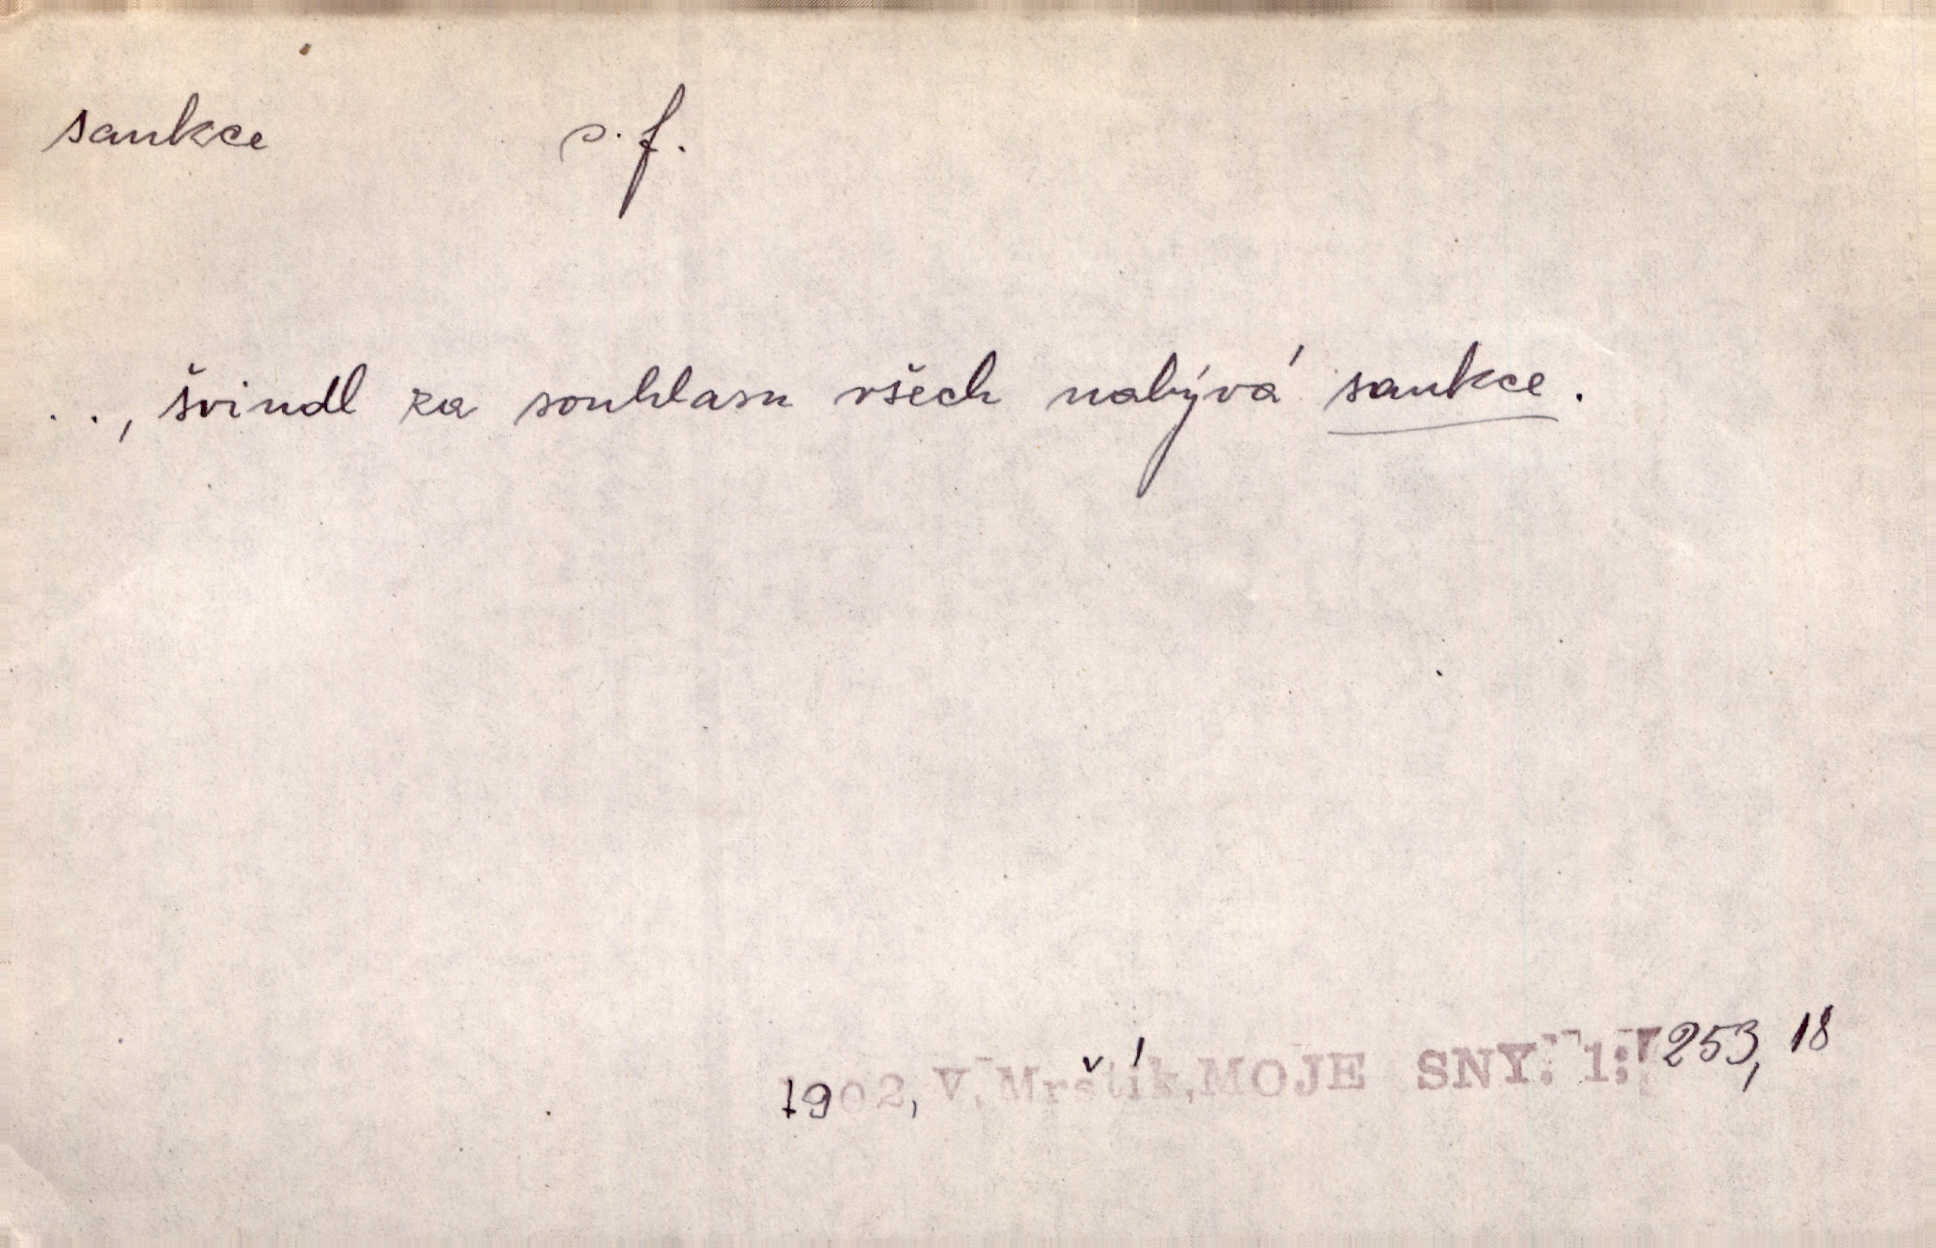 sankce s. f.
. . , švindl za souhlasu všech nabývá sankce.
1902, V. Mrštík, MOJE SNY. 1: 253, 18